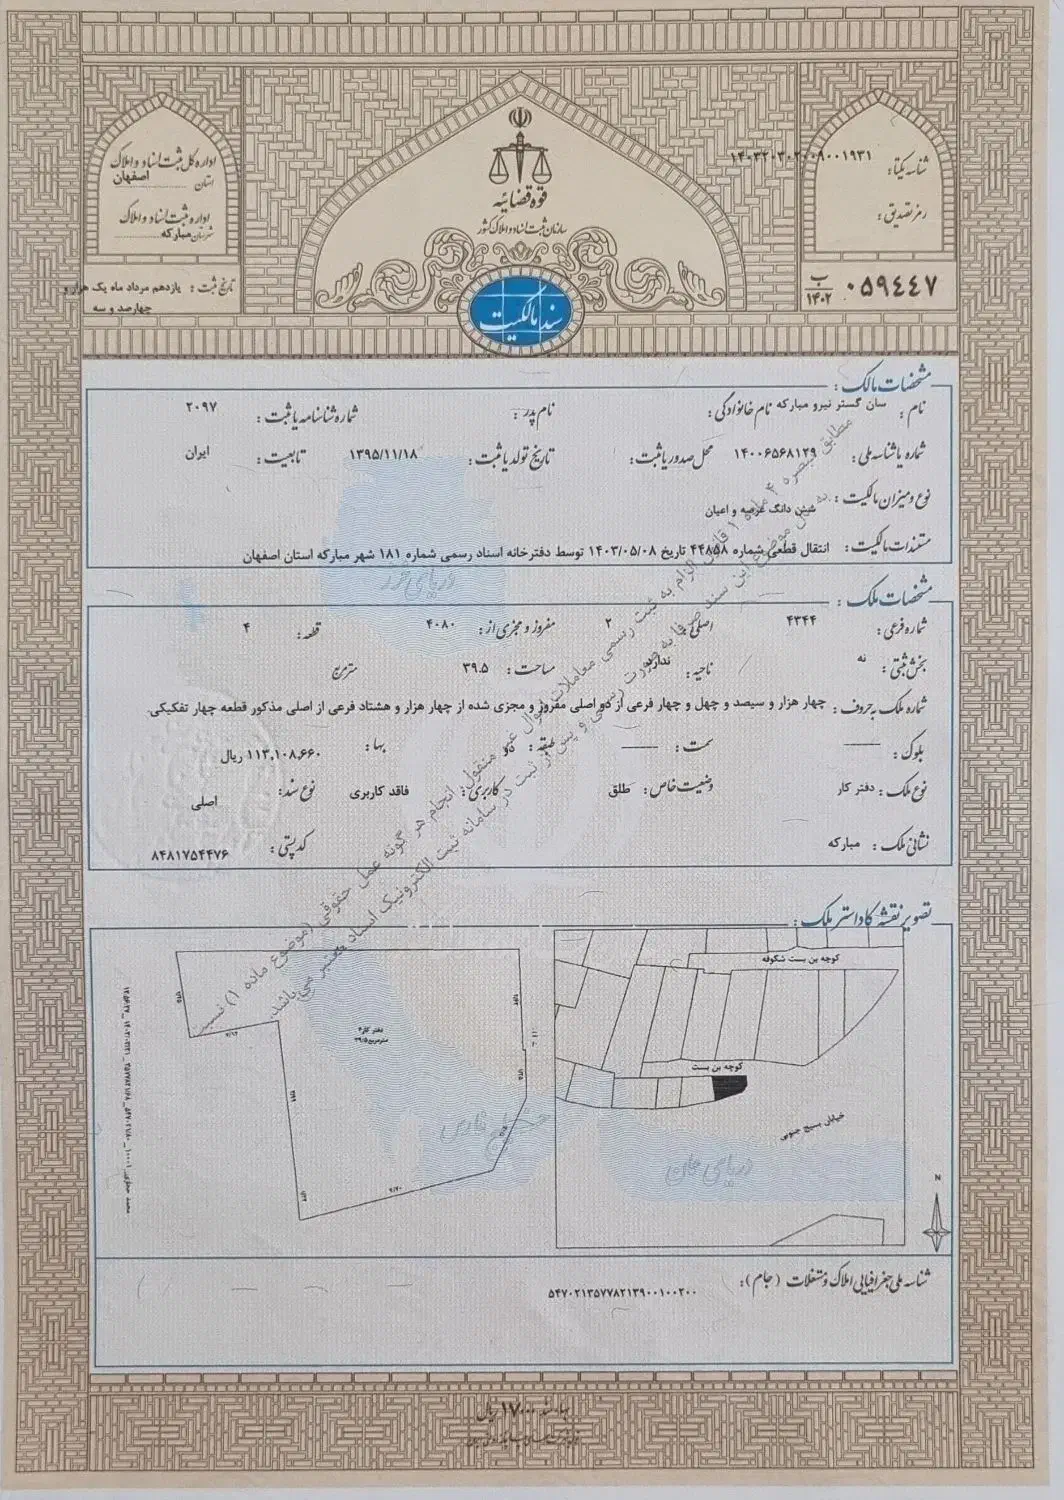 قوه قضائیه
سازمان ثبت اسناد و املاک کشور
سند مالکیت
شناسه یکتا: ۱۴۰۳۲۰۳۰۲۰۰۹۰۰۱۹۳۱
رمز تصدیق:
۰۵۹۴۴۷ ب ۱۴۰۲
اداره کل ثبت اسناد و املاک
استان اصفهان
اداره ثبت اسناد و املاک
شهرستان مبارکه
تاریخ ثبت: یازدهم مرداد ماه یک هزار و
چهارصد و سه
مشخصات مالک:
نام: سان گستر نیرو مبارکه نام خانوادگی: نام پدر: شماره شناسنامه یا ثبت: ۲۰۹۷
شماره یا شناسه ملی: ۱۴۰۰۶۵۶۸۱۲۹ محل صدور یا ثبت: تاریخ تولد یا ثبت: ۱۳۹۵/۱۱/۱۸ تابعیت: ایران
نوع و میزان مالکیت: شش دانگ عرصه و اعیان
مستندات مالکیت: انتقال قطعی شماره ۴۴۸۵۸ تاریخ ۱۴۰۳/۰۵/۰۸ توسط دفترخانه اسناد رسمی شماره ۱۸۱ شهر مبارکه استان اصفهان
مشخصات ملک:
شماره فرعی: ۴۳۴۴ اصلی: ۲ مفروز و مجزی از: ۴۰۸۰ قطعه: ۴
بخش ثبتی: نه ناحیه: ندارد مساحت: ۳۹.۵ متر مربع
شماره ملک به حروف: چهار هزار و سیصد و چهل و چهار فرعی از دو اصلی مفروز و مجزی شده از چهار هزار و هشتاد فرعی از اصلی مذکور قطعه چهار تفکیکی.
بلوک: سمت: طبقه: بها: ۱۱۳,۱۰۸,۶۶۰ ریال
نوع ملک: دفتر کار وضعیت خاص: طلق کاربری: فاقد کاربری نوع سند: اصلی
نشانی ملک: مبارکه کد پستی: ۸۴۸۱۷۵۴۴۷۶
مطابق تبصره ۴ ماده ۱ قانون الزام به ثبت رسمی معاملات اموال غیر منقول، انجام هر گونه عمل حقوقی (موضوع ماده ۱) نسبت
به ملک موضوع این سند صرفا به صورت رسمی و پس از ثبت در سامانه ثبت الکترونیک اسناد معتبر می باشد.
دریای خزر
تصویر نقشه کاداستر ملک:
کوچه بن بست شکوفه
کوچه بن بست
خیابان بسیج جنوبی
N
دفتر کار۴
۳۹.۵مترمربع
خلیج فارس
دریای عمان
شناسه ملی جغرافیایی املاک و مستغلات (جام): ۵۴۷۰۲۱۳۵۷۷۸۲۱۳۹۰۰۱۰۰۲۰۰